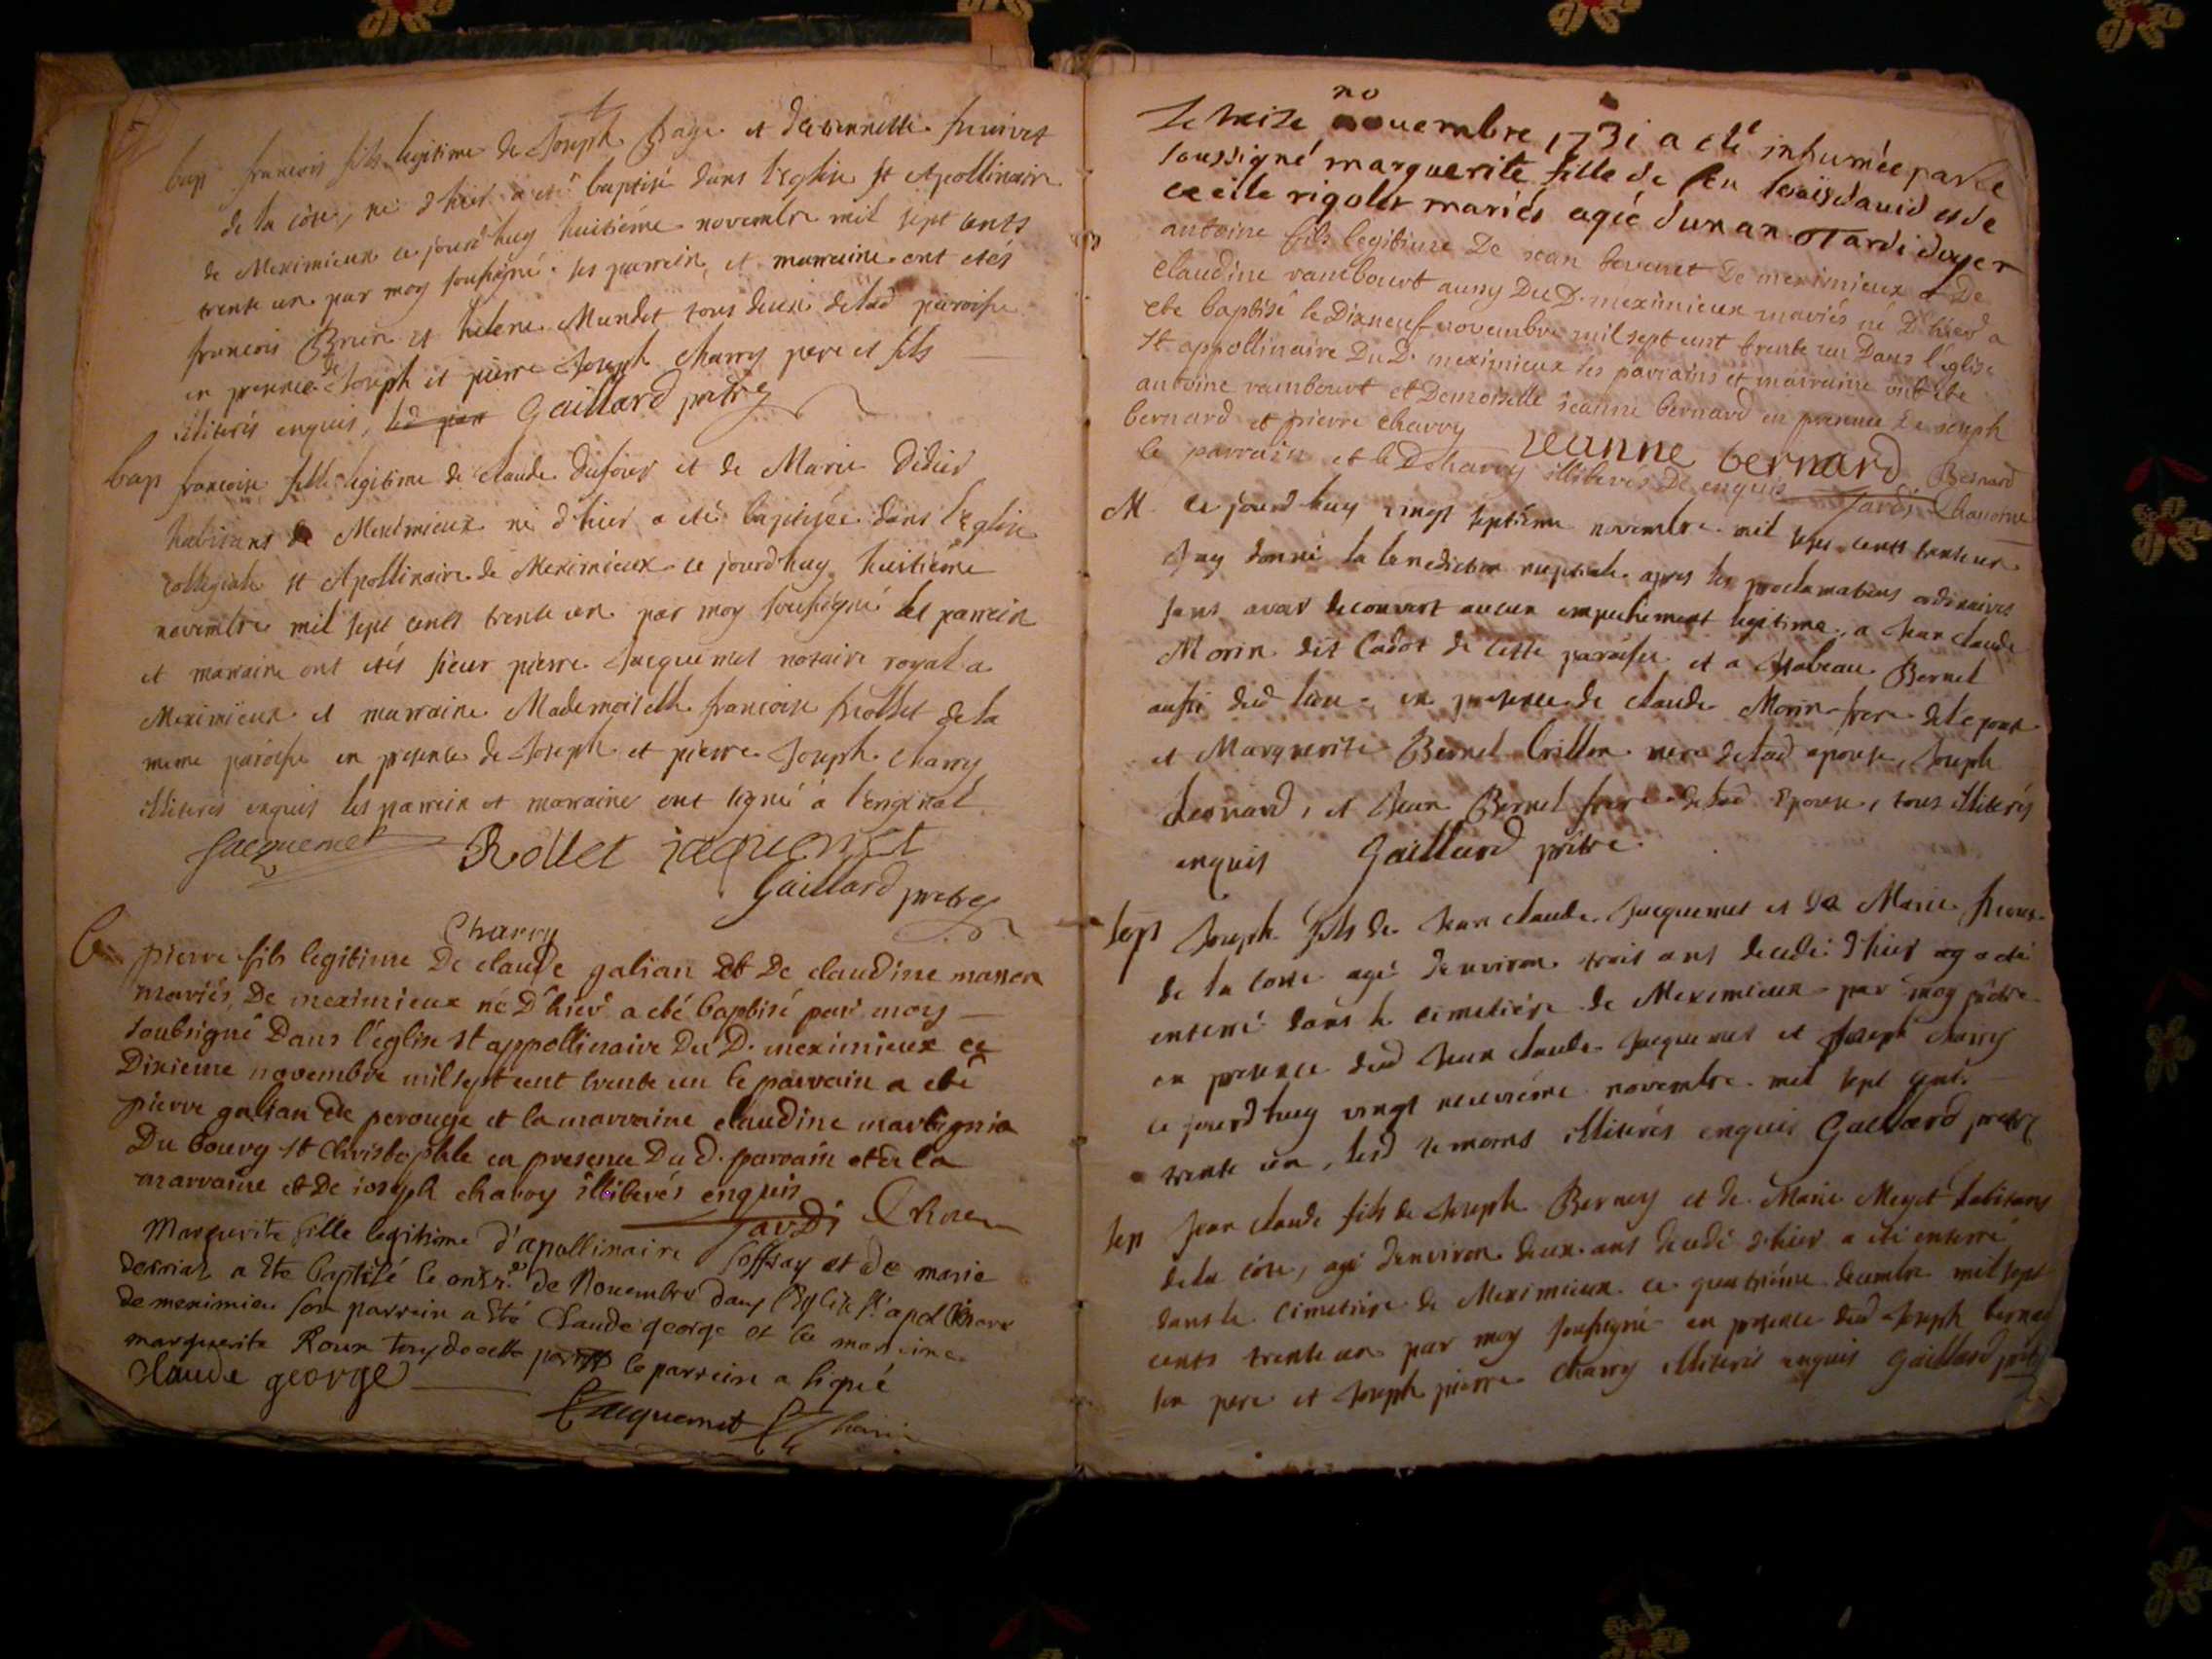 bap francois fils legitime de Joseph page et detiennette
de la côte, né d'hier a eté baptisé dans l'Eglise st Apollinaire
de Meximieux ce jourd'huy huitiéme novembre mil sept cents
trente un par moy soussigné. ses parrein et marraine ont etés
francois Brun et helene Mundet tous deux de lad paroisse
en presence de Joseph et pierre Joseph Charry pere et fils
illiterés enquis, Gaillard pretre
bap francoise fille legitime de claude dufour et de Marie Didier
habitans de Meximieux né d'hier a eté baptisée dans l'Eglise
collegiale st Apollinaire de Meximieux ce jourd'huy huitiéme
novembre mil sept cents trente un par moy soussigné les parrein
et marraine ont etés sieur pierre Jacquemet notaire royal a
Meximieux et marraine Mademoiselle francoise Rollet de la
meme paroisse en presence de Joseph et pierre Joseph Charry
illiterés enquis les parrein et marraine ont signé a l'original
Jacquemet Rollet jaquemet
Gaillard pretre
Charry
B pierre fils legitime De claude galian et De claudine
mariés, De meximieux né D'hier a eté baptisé par moy
soubsigné Dans l'église st appollinaire Du D. meximieux ce
Dixieme novembre mil sept cent trente un le parrain a eté
pierre galian de perouge et la marraine claudine martignia
Du bourg st Christophle en presence Du d. parrain et de la
marraine et De ioseph charvy illiterés enquis
Jardi Chne
Marguerite fille legitime d'apollinaire Joffray et de marie
a Eté baptisé le onzre de Novembre dans l'Eglise st apollinaire
de meximieu son parrein a Eté Claude george et la marreine
marguerite Roux tous de cette le parrein a signé
Claude george
Jacquemet
no
Le treize nouembre 1731 a eté inhumée par le
soussigné marguerite fille de feu louis dauid et de
cecile rigolet mariés agée d'un an Tardi doyer
antoine fils legitime De jean De meximieux et De
claudine rambourt aussy Du D. meximieux mariés né D'hier a
ete baptisé le Dixneuf novembre mil sept cent trente un Dans l'église
st appollinaire Du D. meximieux ses parrains et marraine ont ete
antoine rambourt et Demoiselle jeanne bernard en presence De ioseph
bernard et pierre charvy jeanne bernard Bernard
le parrain et le D charvy illiterés De enquis Jardi Chanoine
M. Ce jourd'huy vingt septiéme novembre mil sept cents trente un
J'ay donné la benediction nuptiale apres les proclamations ordinaires
sans avoir decouvert aucun empechement legitime, a Jean claude
Morin dit Cadot de cette paroisse et a Isabeau Bernet
aussi dud lieu, en presence de claude Morin frere de l'epoux
et Marguerite Bernet Crillon mere de lad epouse, Joseph
Leonard, et Jean Bernet frere de lad Epouse, tous illiterés
enquis Gaillard prêtre
sep Joseph fils de Jean claude Jacquemet et de Marie
de la coste agé d'environ trois ans decedé d'hier a eté
enterré dans le cimetiére de Meximieux par moy prêtre
en presence dud Jean claude Jacquemet et Joseph charry
ce jourd'huy vingt neuviéme novembre mil sept cent
trente un, lesd temoins illiterés enquis Gaillard pretre
sep Jean claude fils de Joseph Berney et de Marie Meyet habitans
de la côte, agé d'environ deux ans decedé d'hier a eté enterré
dans le cimetiére de Meximieux ce quatriéme decembre mil sept
cents trente un par moy soussigné en presence dud Joseph
son pere et Joseph pierre charry illiterés enquis Gaillard prêtre